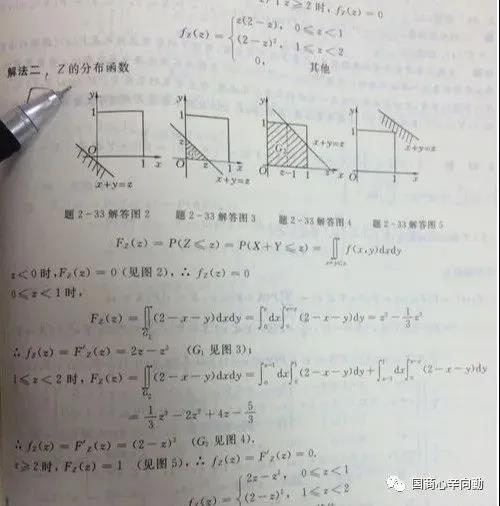 z≥2时, f_Z(z)=0
f_Z(z)={z(2-z), 0≤z<1
(2-z)², 1≤z<2
0, 其他
解法二, Z的分布函数
y y y y
1 1 1 1
O 1 x z G₁ O z 1 x G₂ O z-1 1 z x O 1 x
x+y=z x+y=z x+y=z x+y=z
题2-33解答图2 题2-33解答图3 题2-33解答图4 题2-33解答图5
F_Z(z)=P(Z≤z)=P(X+Y≤z)=∬_{x+y≤z} f(x,y)dxdy
z<0时, F_Z(z)=0(见图2), ∴ f_Z(z)=0
0≤z<1时,
F_Z(z)=∬_{G₁}(2-x-y)dxdy=∫₀^z dx∫₀^{z-x}(2-x-y)dy=z²-1/3 z³
∴ f_Z(z)=F'_Z(z)=2z-z² (G₁见图3);
1≤z<2时, F_Z(z)=∬_{G₂}(2-x-y)dxdy=∫₀^{z-1}dx∫₀^1(2-x-y)dy+∫_{z-1}^1 dx∫₀^{z-x}(2-x-y)
=1/3 z³-2z²+4z-5/3
∴ f_Z(z)=F'_Z(z)=(2-z)² (G₂见图4).
z≥2时, F_Z(z)=1 (见图5), ∴ f_Z(z)=F'_Z(z)=0.
f_Z(z)={2z-z², 0≤z<1
(2-z)², 1≤z<2
国商心羊向勳